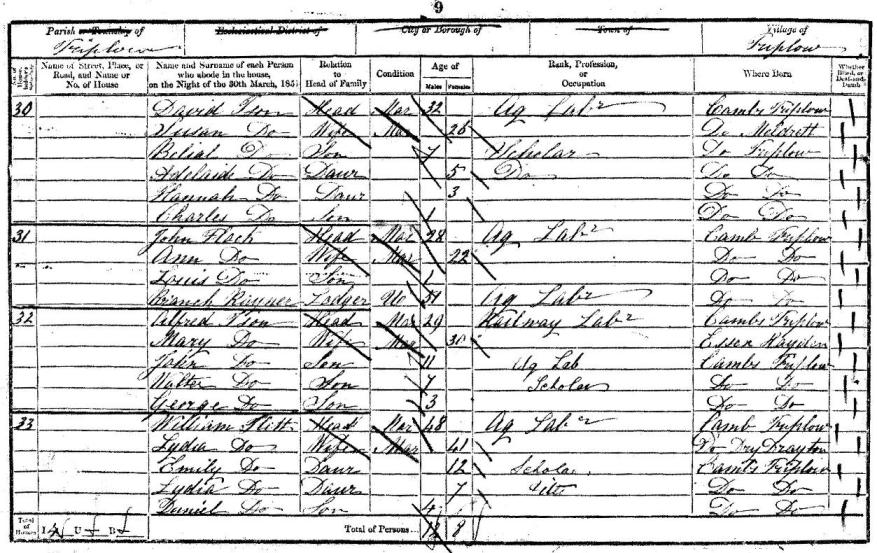 9
Parish or Township of Ecclesiastical District of City or Borough of Town of Village of
Triplow Triplow
Name of Street, Place, or Road, and Name or No. of House
Name and Surname of each Person who abode in the house, on the Night of the 30th March, 1851
Relation to Head of Family
Condition
Age of
Males Females
Rank, Profession, or Occupation
Where Born
Whether Blind, or Deaf-and-Dumb
30 David Ison Head Mar 32 Ag Labr Cambs Triplow
Susan Do Wife Mar 26 Do Meldreth
Belial Do Son 7 Scholar Do Triplow
Adelaide Do Daur 5 Do Do Do
Hannah Do Daur 3 Do Do
Charles Do Son 1 Do Do
31 John Flack Head Mar 28 Ag Labr Camb Triplow
Ann Do Wife Mar 22 Do Do
Louis Do Son 1 Do Do
Branch Rayner Lodger Un 51 Ag Labr Do Do
32 Alfred Ison Head Mar 29 Railway Labr Cambs Triplow
Mary Do Wife Mar 30 Essex Haydon
John Do Son 11 Ag Lab Cambs Triplow
Walter Do Son 7 Scholar Do Do
George Do Son 3 Do Do
33 William Flitt Head Mar 48 Ag Labr Camb Triplow
Lydia Do Wife Mar 41 Do Dry Drayton
Emily Do Daur 12 Scholar Cambs Triplow
Lydia Do Daur 7 Ditto Do Do
Daniel Do Son 4 Do Do
Total of Houses I 4 U B Total of Persons... 12 8